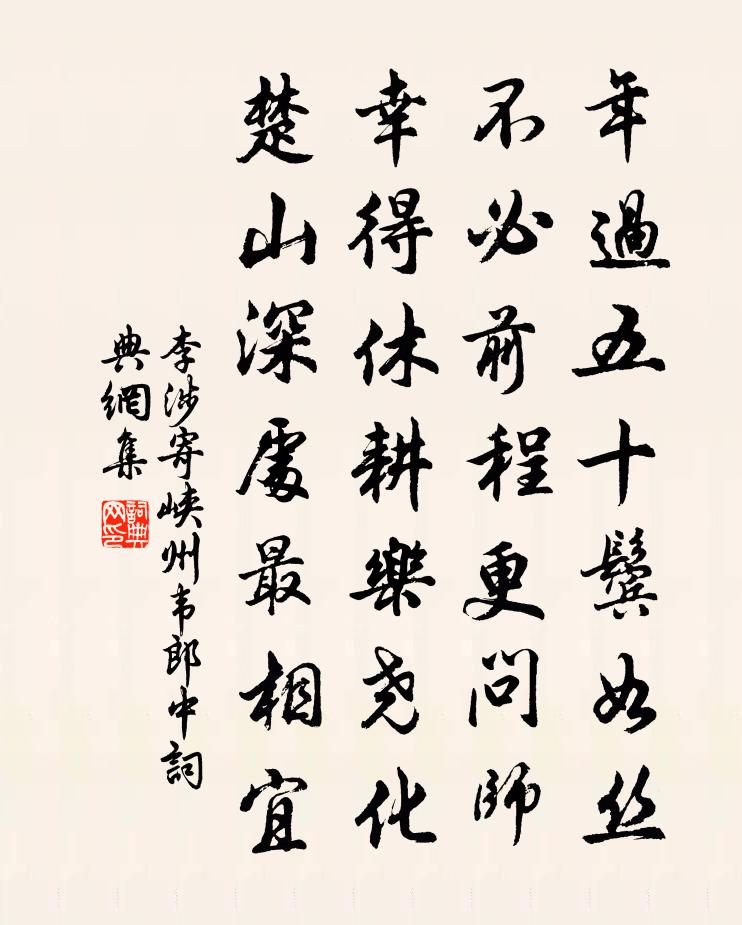 年過五十鬢如絲
不必前程更問師
幸得休耕樂尧化
楚山深處最相宜
李涉寄峡州韦郎中詞
典網集
詞典
网印